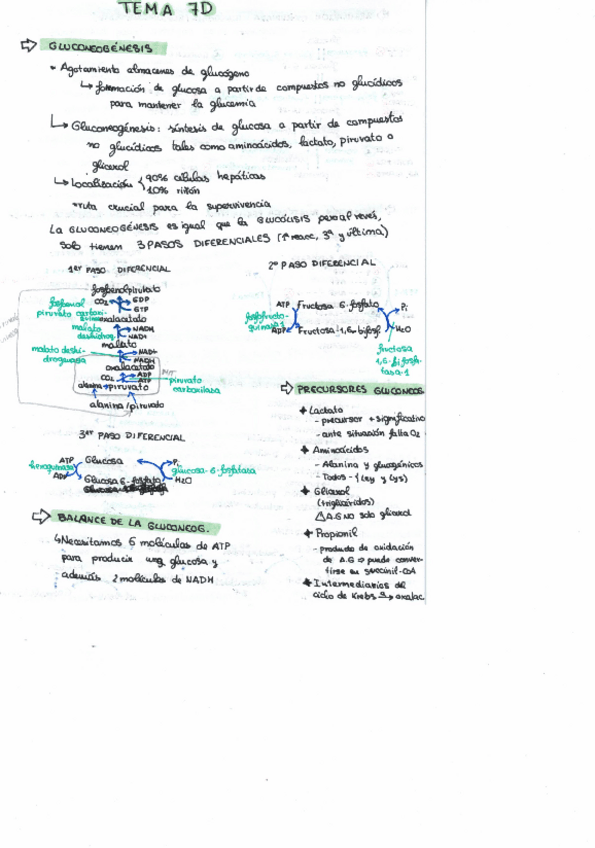 TEMA 7D
⇨ GLUCONEOGÉNESIS
• Agotamiento almacenes de glucógeno
↳ formación de glucosa a partir de compuestos no glucídicos
para mantener la glucemia
↳ Gluconeogénesis: síntesis de glucosa a partir de compuestos
no glucídicos tales como aminoácidos, lactato, piruvato o
glicerol
↳ Localización { 90% células hepáticas
10% riñón
* ruta crucial para la supervivencia
LA GLUCONEOGÉNESIS es igual que la GLUCÓLISIS pero al revés,
solo tienen 3 PASOS DIFERENCIALES (1ª reacc, 3ª y última)
1er PASO DIFERENCIAL
fosfoenolpiruvato
CO2 GDP
GTP
fosfoenol
piruvato carboxi-
oxalacetato
malato
deshidrog.
NADH
NAD+
malato
malato deshi-
drogenasa
NAD+
NADH
oxalacetato
CO2 ADP
ATP
MIT
piruvato
carboxilasa
alanina → piruvato
alanina / piruvato
2º PASO DIFERENCIAL
ATP Fructosa 6-fosfato Pi
fosfofructo-
quinasa 1
ADP Fructosa-1,6-bifosf. H2O
fructosa
1,6-bifosfa-
tasa-1
3er PASO DIFERENCIAL
ATP Glucosa Pi
hexoquinasa glucosa-6-fosfatasa
ADP Glucosa 6-fosfato H2O
⇨ BALANCE DE LA GLUCONEOG.
↳ Necesitamos 6 moléculas de ATP
para producir una glucosa y
además 2 moléculas de NADH
⇨ PRECURSORES GLUCONEOG
+ Lactato
- precursor + significativo
- ante situación falta O2
+ Aminoácidos
- Alanina y glucogénicos
- Todos - (Ley y Lys)
+ Glicerol
(triglicéridos)
⚠ A.G NO solo glicerol
+ Propionil
- producto de oxidación
de A.G ⇒ puede conver-
tirse en succinil-CoA
+ Intermediarios del
ciclo de Krebs → oxalac.